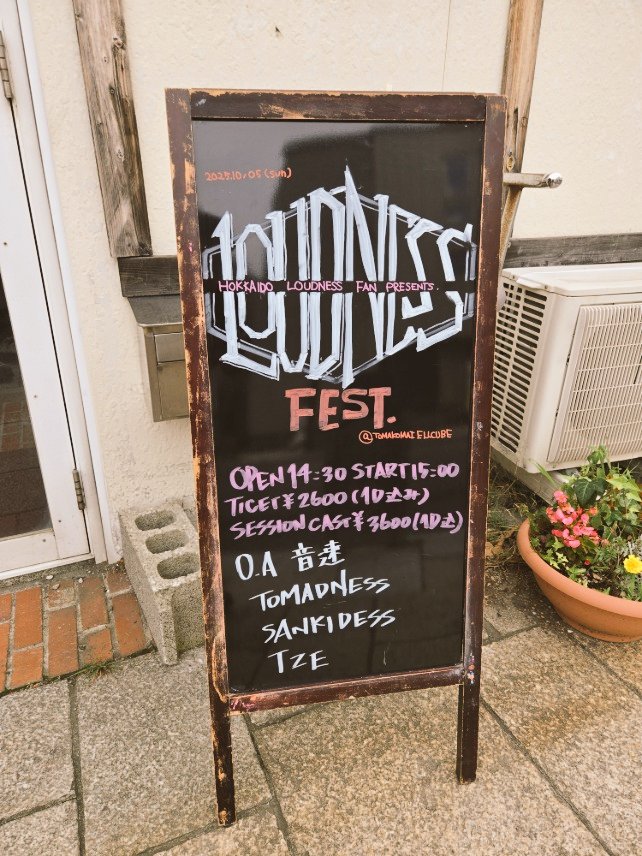 2025.10.05 (sun)
LOUDNESS
HOKKAIDO LOUDNESS FAN PRESENTS.
FEST.
@TOMAKOMAI ELLCUBE
OPEN 14:30 START 15:00
TICET ¥2600 (1D込み)
SESSION CAST ¥3600 (1D込)
O.A 音速
TOMADNESS
SANKIDESS
TZE